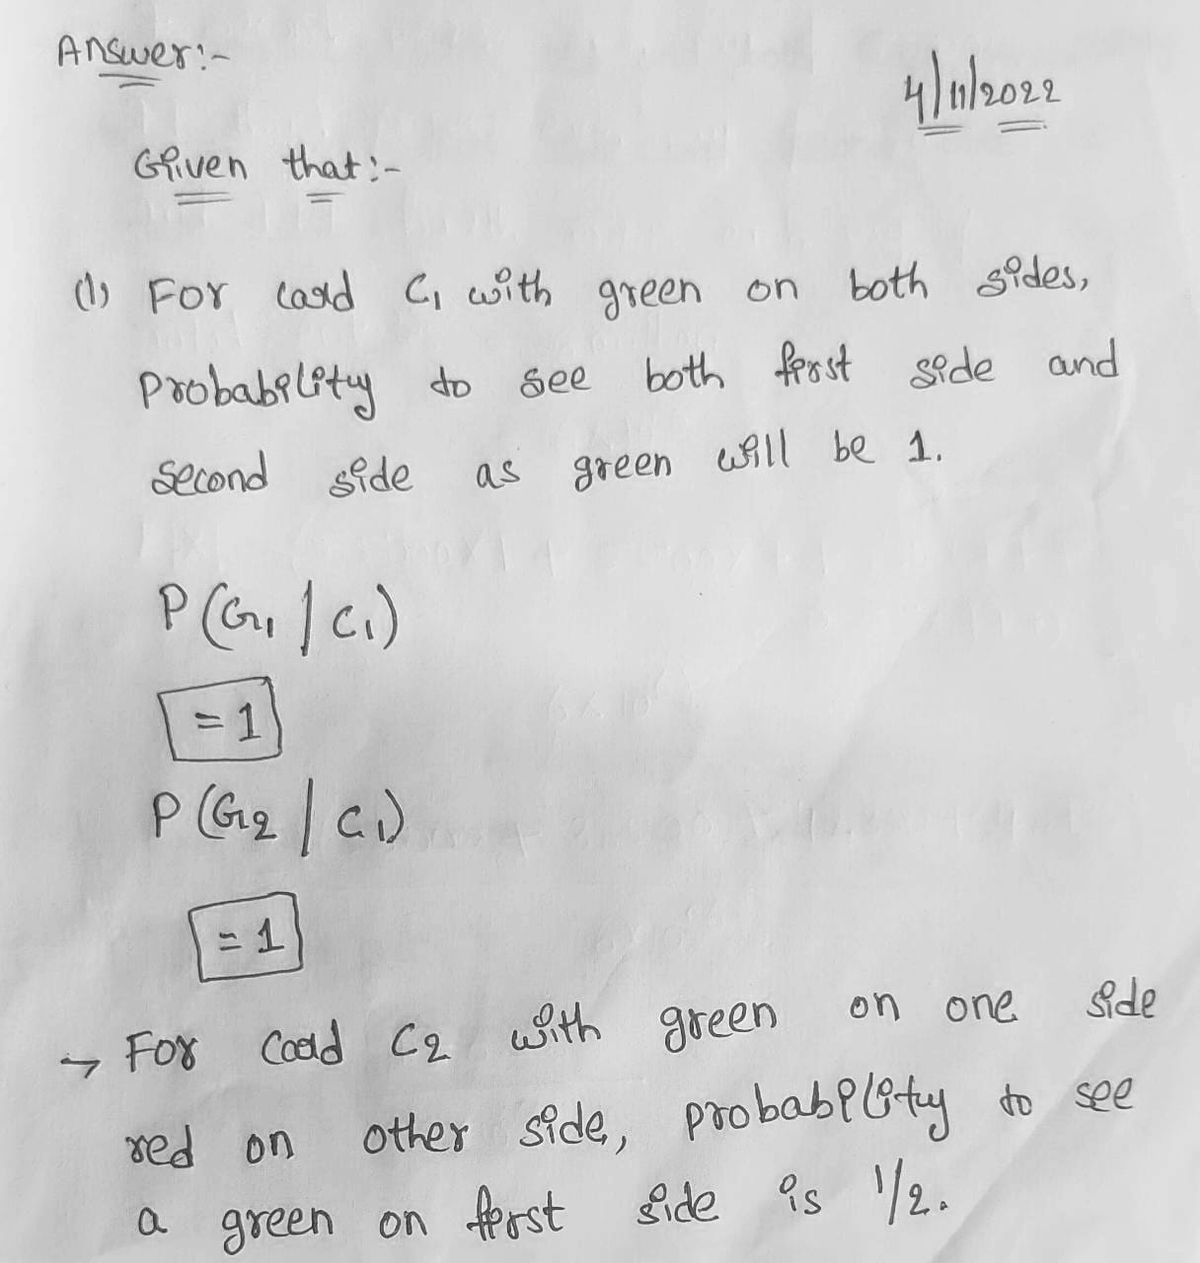 Answer:-
4/11/2022
Given that:-
(1) For card C1 with green on both sides,
probability to see both first side and
second side as green will be 1.
P(G1 / C1)
= 1
P(G2 / C1)
= 1
→ For card C2 with green on one side
red on other side, probability to see
a green on first side is 1/2.